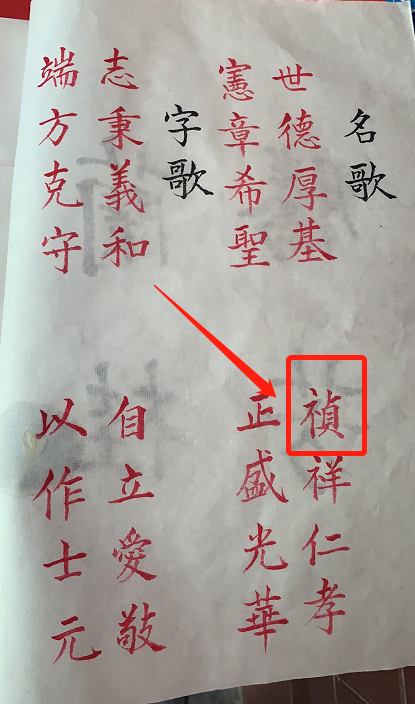 名歌
世德厚基
禎祥仁孝
憲章希聖
正盛光華
字歌
志秉義和
自立愛敬
端方克守
以作士元